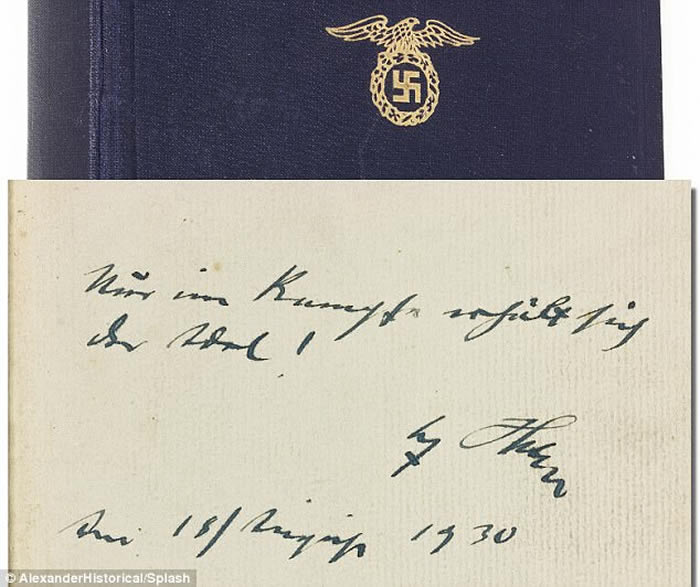 Nur im Kampf erhält sich
der !
Hitler
18/August 1930
© AlexanderHistorical/Splash